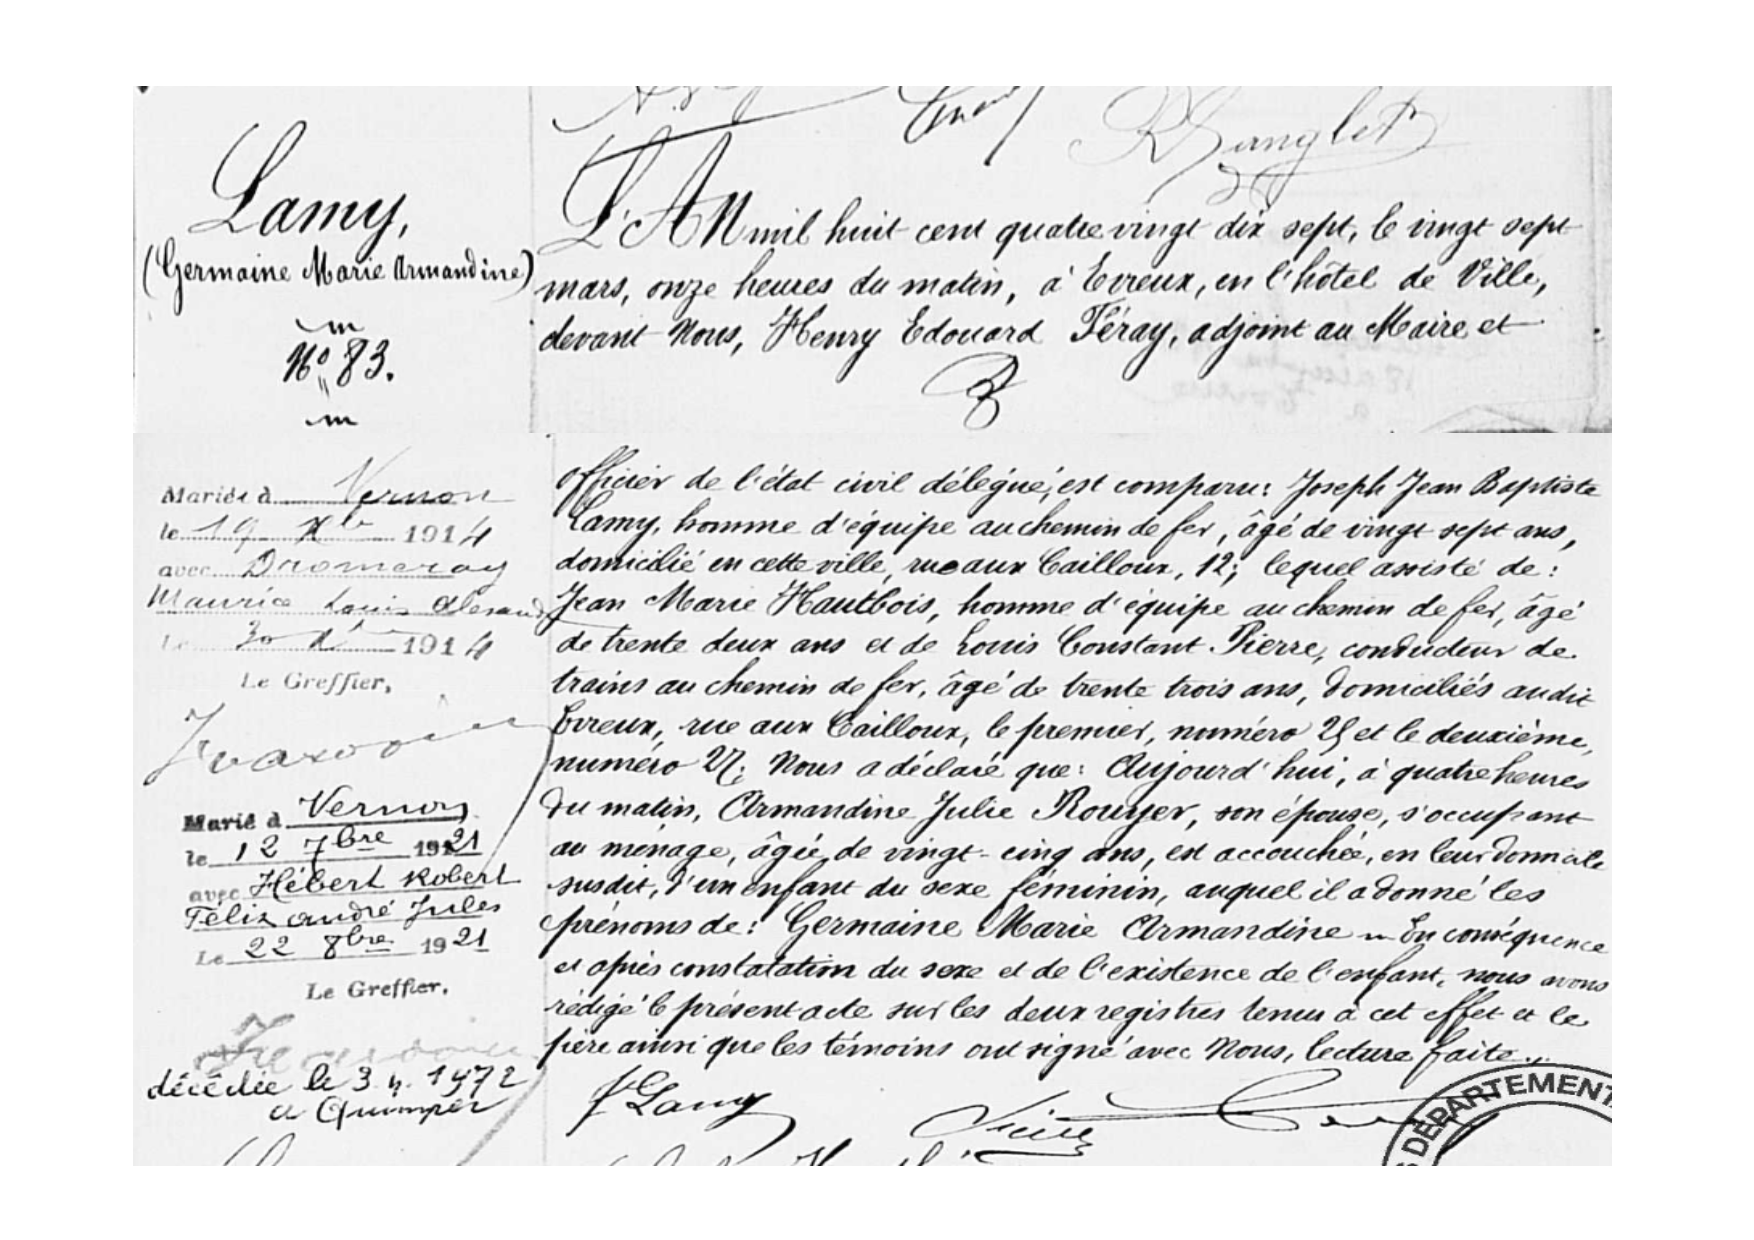 Danglet
Lamy,
(Germaine Marie Armandine)
N° 83.
L'AN mil huit cent quatre vingt dix sept, le vingt sept
mars, onze heures du matin, à Evreux, en l'hôtel de Ville,
devant Nous, Henry Edouard Féray, adjoint au Maire et
officier de l'état civil délégué, est comparu: Joseph Jean Baptiste
Lamy, homme d'équipe au chemin de fer, âgé de vingt sept ans,
domicilié en cette ville, rue aux Cailloux, 12; lequel assisté de:
Jean Marie Hautbois, homme d'équipe au chemin de fer, âgé
de trente deux ans et de Louis Constant Pierre, conducteur de
trains au chemin de fer, âgé de trente trois ans, domiciliés audit
Evreux, rue aux Cailloux, le premier, numéro 25 et le deuxième,
numéro 27; Nous a déclaré que: Aujourd'hui, à quatre heures
du matin, Armandine Julie Rouyer, son épouse, s'occupant
au ménage, âgée de vingt-cinq ans, est accouchée, en leur domicile
susdit, d'un enfant du sexe féminin, auquel il a donné les
prénoms de: Germaine Marie Armandine _ En conséquence
et après constatation du sexe et de l'existence de l'enfant, nous avons
rédigé le présent acte sur les deux registres tenus à cet effet et le
père ainsi que les témoins ont signé avec Nous, lecture faite.
Mariée à Vernon
le 19 Xbre 1914
avec Dromeray
Maurice Louis Alexand
Le 30 Xbre 1914
Le Greffier,
Marié à Vernon
le 12 7bre 1921
avec Hébert Robert
Félix André Jules
Le 22 8bre 1921
Le Greffier.
décédée le 3. 4. 1972
à Quimper
J Lamy
Pierre
DÉPARTEMENT